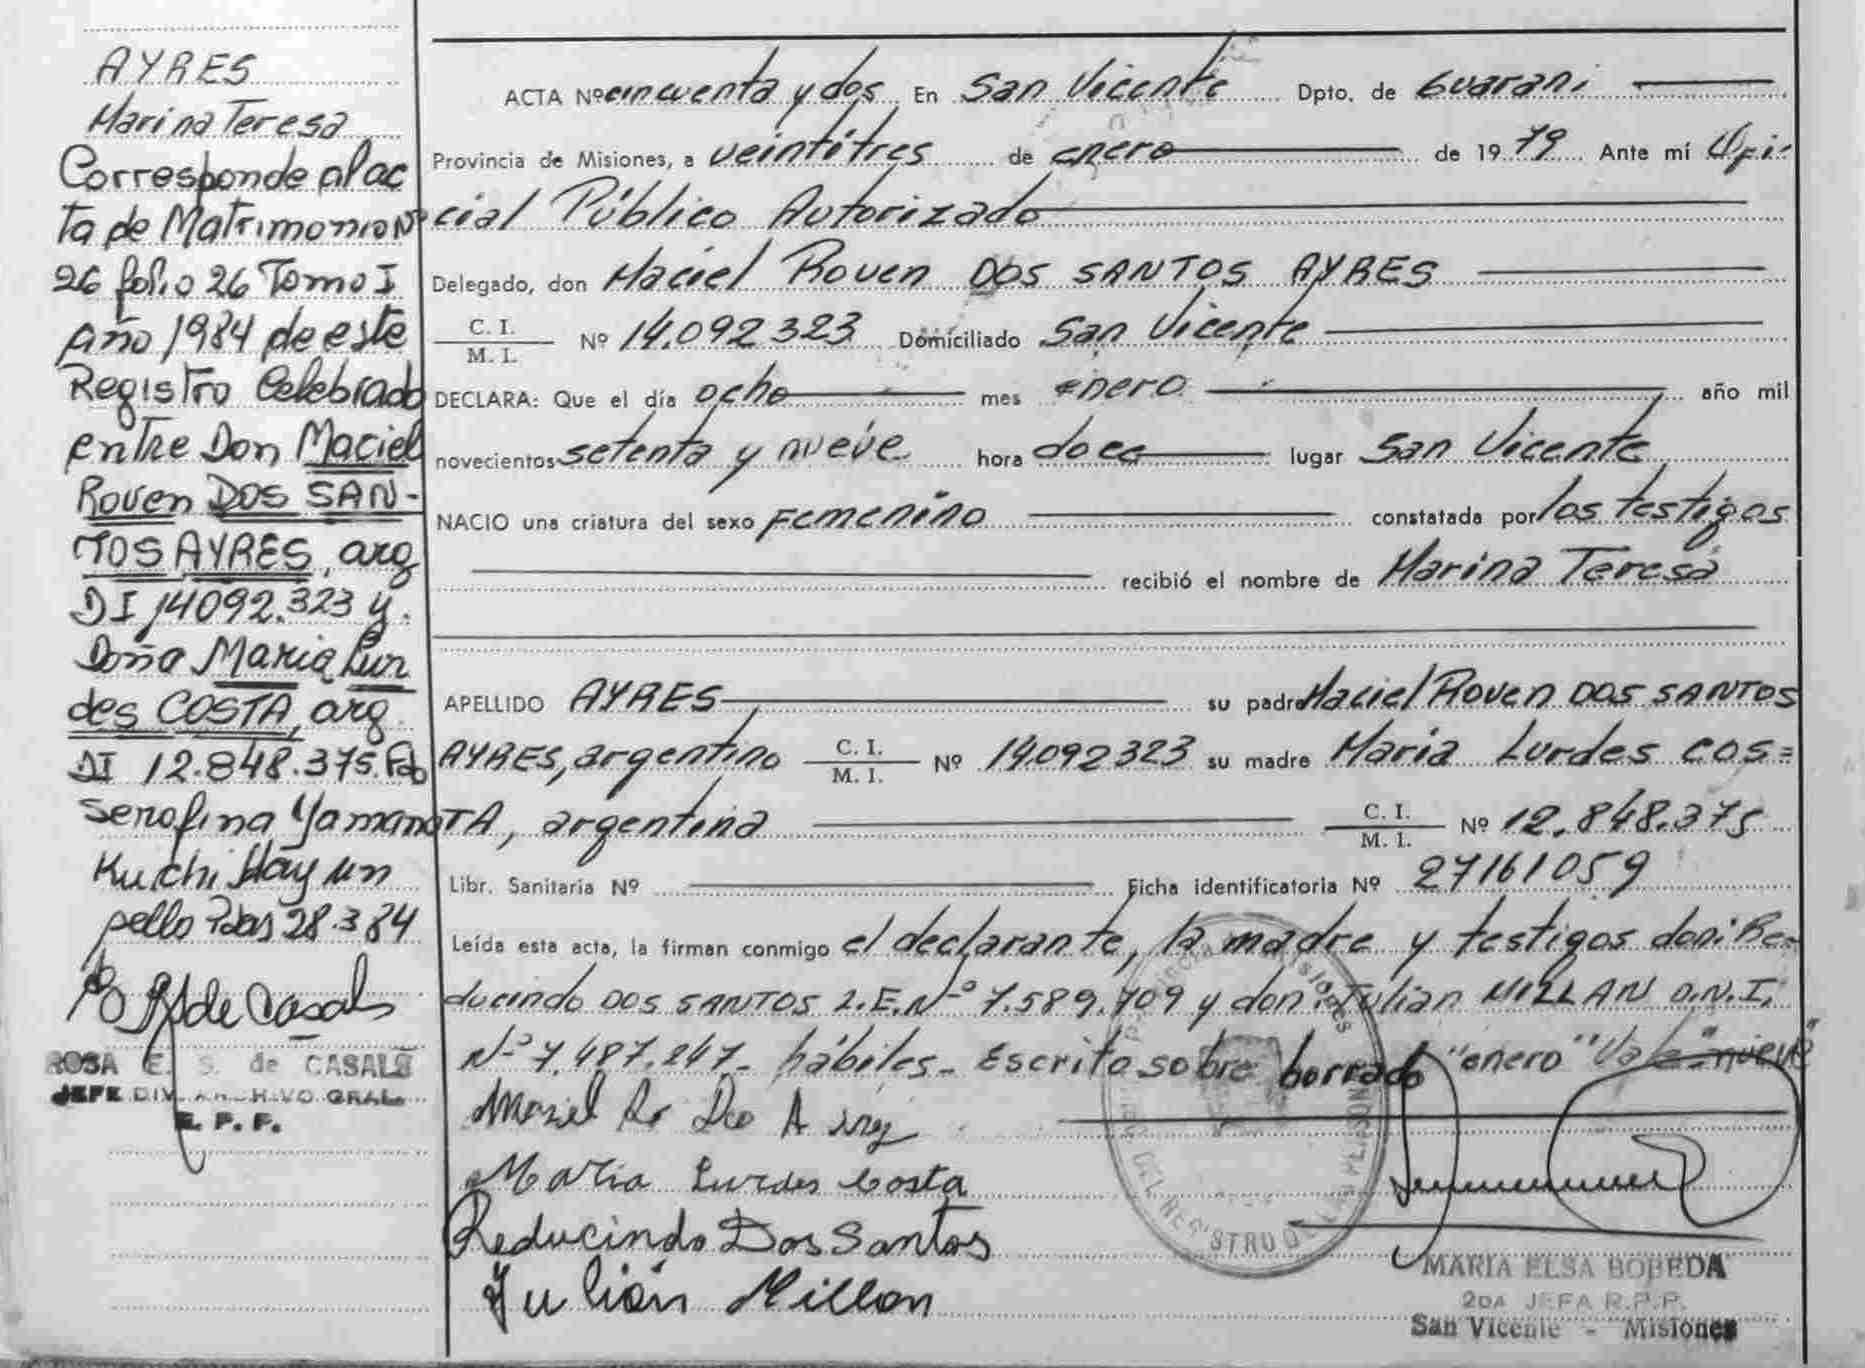 AYRES
Marina Teresa
Corresponde al ac
ta de Matrimonio Nº
26 folio 26 Tomo I
año 1984 de este
Registro Celebrado
entre Don Maciel
Roven DOS SAN-
TOS AYRES, arg
DI 14092.323 y.
Doña Maria Lur
des COSTA, arg.
DI 12.848.375. Fdo
Serafina Yamana
Kuchi Hay un
sello Pdas 28.3.84
ROSA E. S. de CASALS
JEFE DIV. ARCHIVO GRAL.
R. P. P.
ACTA Nº cincuenta y dos En San Vicente Dpto. de Guarani
Provincia de Misiones, a veintitres de enero de 1979 Ante mí Ofi-
cial Público Autorizado
Delegado, don Maciel Roven DOS SANTOS AYRES
C. I. / M. I. Nº 14.092323 Domiciliado San Vicente
DECLARA: Que el día ocho mes enero año mil
novecientos setenta y nueve hora doce lugar San Vicente
NACIO una criatura del sexo Femenino constatada por los testigos
recibió el nombre de Marina Teresa
APELLIDO AYRES su padre Maciel Roven DOS SANTOS
AYRES, argentino C. I. / M. I. Nº 14.092323 su madre Maria Lurdes COS=
TA, argentina C. I. / M. I. Nº 12.848.375
Libr. Sanitaria Nº Ficha identificatoria Nº 27161059
Leída esta acta, la firman conmigo el declarante, la madre y testigos don: Re-
ducindo DOS SANTOS L.E.Nº 7.589.709 y don: Julian MILLAN D.N.I.
Nº 7.487.247- hábiles- Escrito sobre borrado "enero" Vale "nueve"
Maria Lurdes Costa
Reducindo Dos Santos
Julián Millan
DEL REGISTRO DE LAS PERSONAS
MARIA ELSA BOBEDA
2DA JEFA R.P.P.
San Vicente - Misiones